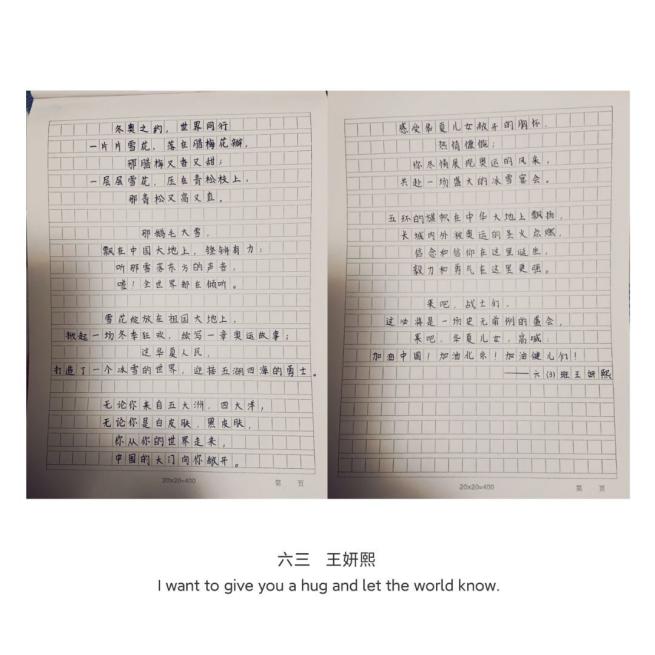 冬奥之约，世界同行
一片片雪花，落在腊梅花瓣，
那腊梅又香又甜；
一层层雪花，压在青松枝上，
那青松又高又直。
那鹅毛大雪，
飘在中国大地上，铿锵有力；
听那雪落东方的声音，
嘘！全世界都在倾听。
雪花绽放在祖国大地上，
掀起一场冬季狂欢，续写一章奥运故事；
这华夏人民，
打造了一个冰雪的世界，迎接五湖四海的勇士。
无论你来自五大洲，四大洋，
无论你是白皮肤，黑皮肤，
你从你的世界走来，
中国的大门向你敞开。
20×20=400 第 页
感受华夏儿女敞开的胸怀，
热情慷慨；
你尽情展现奥运的风采，
共赴一场盛大的冰雪宴会。
五环的旗帜在中华大地上飘扬，
长城内外被奥运的圣火点燃，
信念和信仰在这里诞生，
毅力和勇气在这里更强。
来吧，战士们，
这必将是一场史无前例的盛会，
来吧，华夏儿女，高喊：
加油中国！加油北京！加油健儿们！
——六（3）班王妍熙
20×20=400 第 页
六三 王妍熙
I want to give you a hug and let the world know.